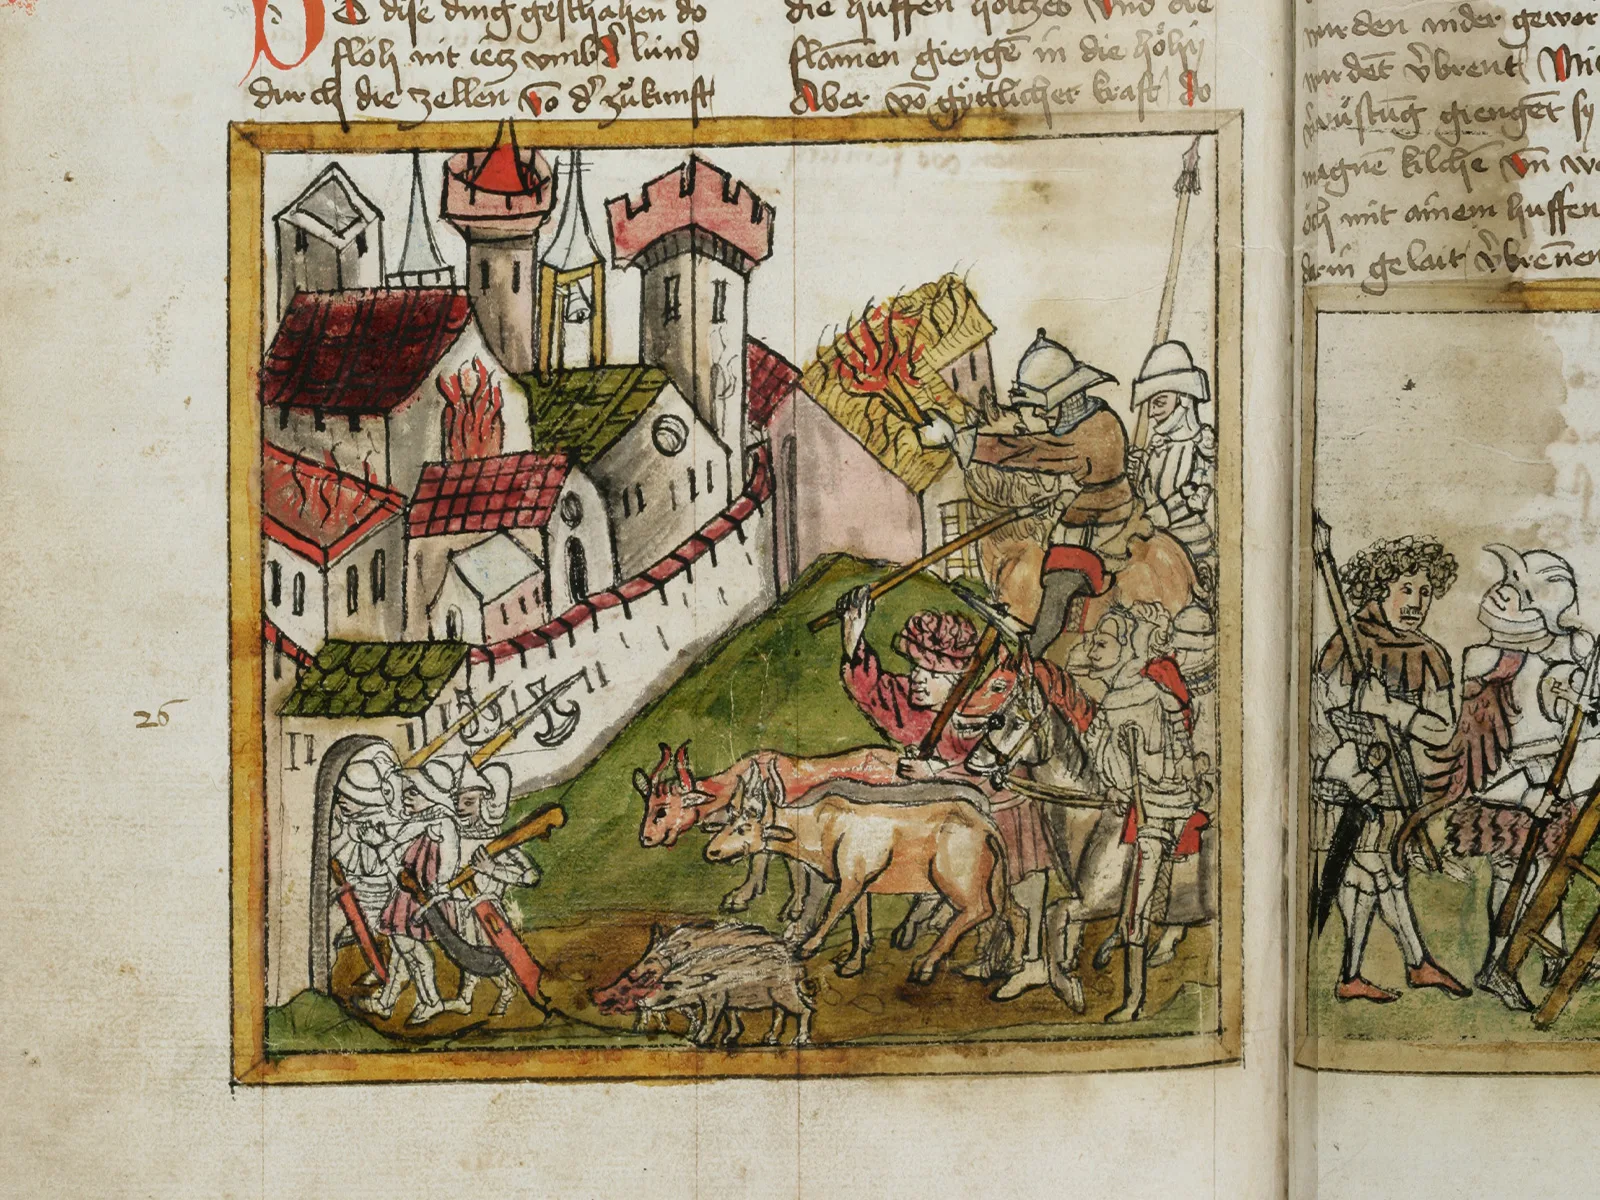 Do dise ding geschahen do
floh nit ietz vmb d' lúnd
durch die zellen vō d' zůkunft
die huffen holtzes vnd die
flamen giengē in die höhy
Aber vō göttlicher kraft do
26
wurden nider gewor
wurdēt v̉brent
giengēt sy
magnē kilchē vn̄ we
öch mit ainem huffen
gelait v̉brēnen